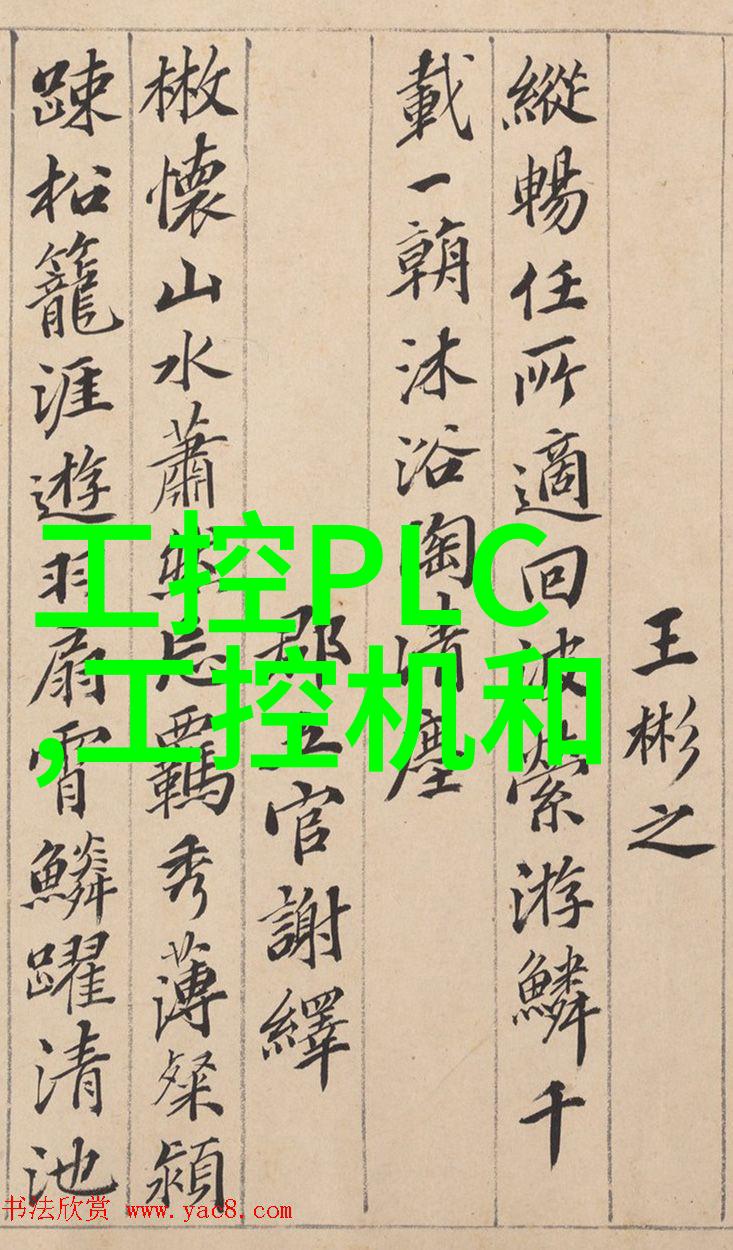 王彬之
縱暢任所適回波縈游鱗千
載一朝沐浴陶清塵
郡五官謝繹
散懷山水蕭然忘羈秀薄粲穎
踈松籠涯遊羽扇霄鱗躍清池
工控PLC
,工控机和
书法欣赏 www.yac8.com